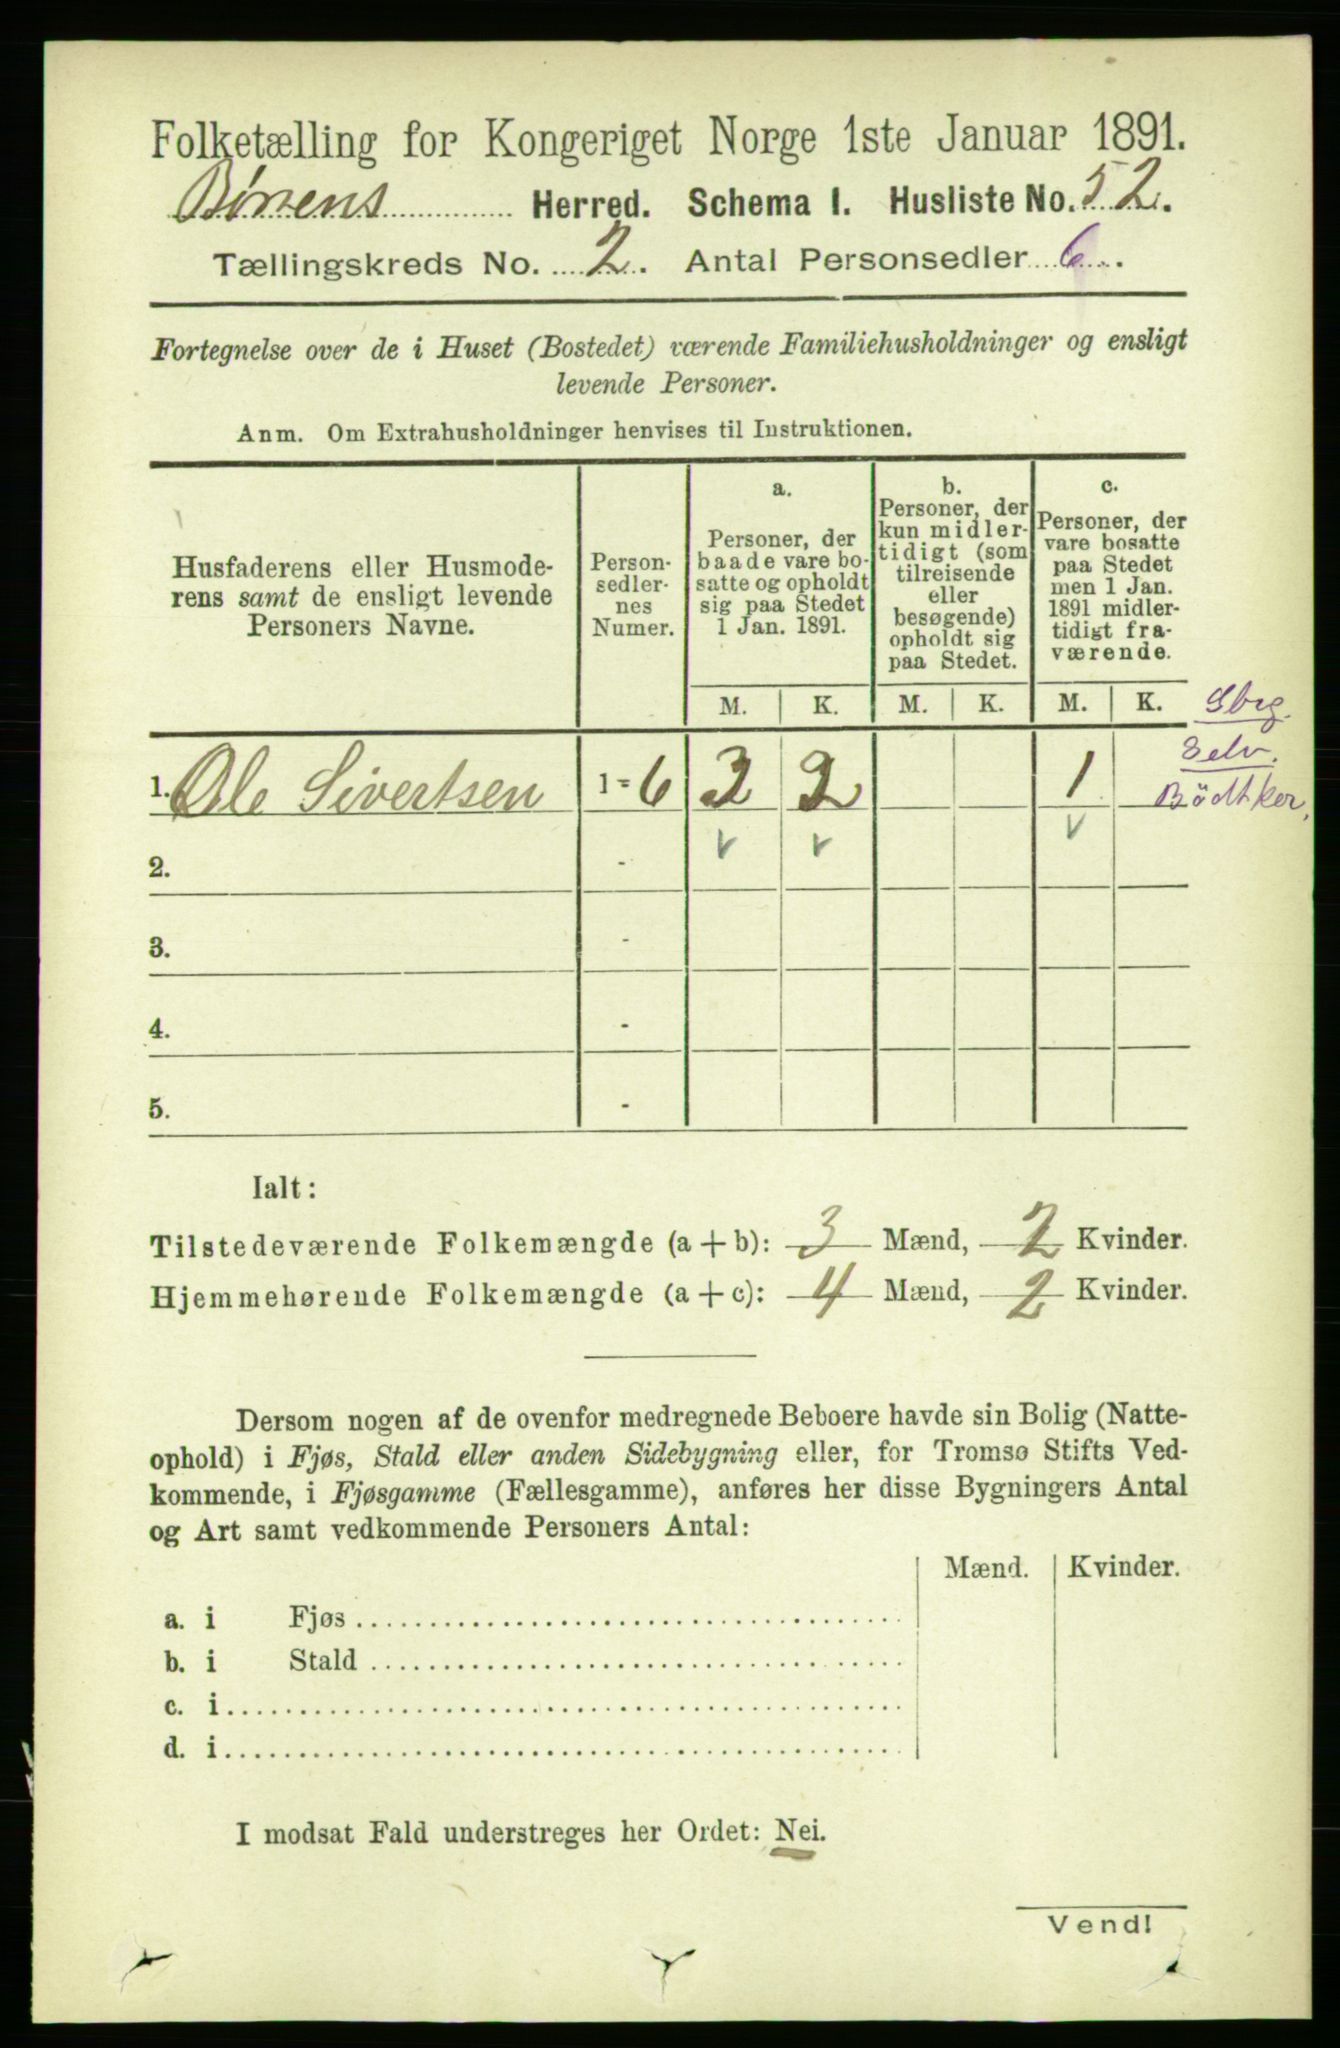 Folketælling for Kongeriget Norge 1ste Januar 1891.
Børsens Herred. Schema I. Husliste No. 52.
Tællingskreds No. 2. Antal Personsedler 6.
Fortegnelse over de i Huset (Bostedet) værende Familiehusholdninger og ensligt
levende Personer.
Anm. Om Extrahusholdninger henvises til Instruktionen.
Husfaderens eller Husmode-
rens samt de ensligt levende
Personers Navne.
Person-
sedler-
nes
Numer.
a.
Personer, der
baade vare bo-
satte og opholdt
sig paa Stedet
1 Jan. 1891.
b.
Personer, der
kun midler-
tidigt (som
tilreisende
eller
besøgende)
opholdt sig
paa Stedet.
c.
Personer, der
vare bosatte
paa Stedet
men 1 Jan.
1891 midler-
tidigt fra-
værende.
M. K. M. K. M. K.
Sbrg.
Selv.
Bödtker,
1. Ole Sivertsen 1 - 6 3 2 1
2. -
3. -
4. -
5. -
Ialt:
Tilstedeværende Folkemængde (a + b): 3 Mænd, 2 Kvinder.
Hjemmehørende Folkemængde (a + c): 4 Mænd, 2 Kvinder.
Dersom nogen af de ovenfor medregnede Beboere havde sin Bolig (Natte-
ophold) i Fjøs, Stald eller anden Sidebygning eller, for Tromsø Stifts Ved-
kommende, i Fjøsgamme (Fællesgamme), anføres her disse Bygningers Antal
og Art samt vedkommende Personers Antal:
Mænd. Kvinder.
a. i Fjøs
b. i Stald
c. i
d. i
I modsat Fald understreges her Ordet: Nei.
Vend!